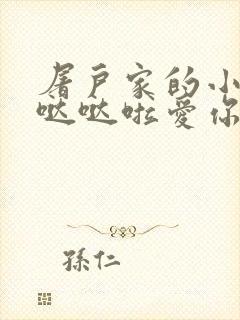 屠户家的小
哒哒啦爱你
孫仁